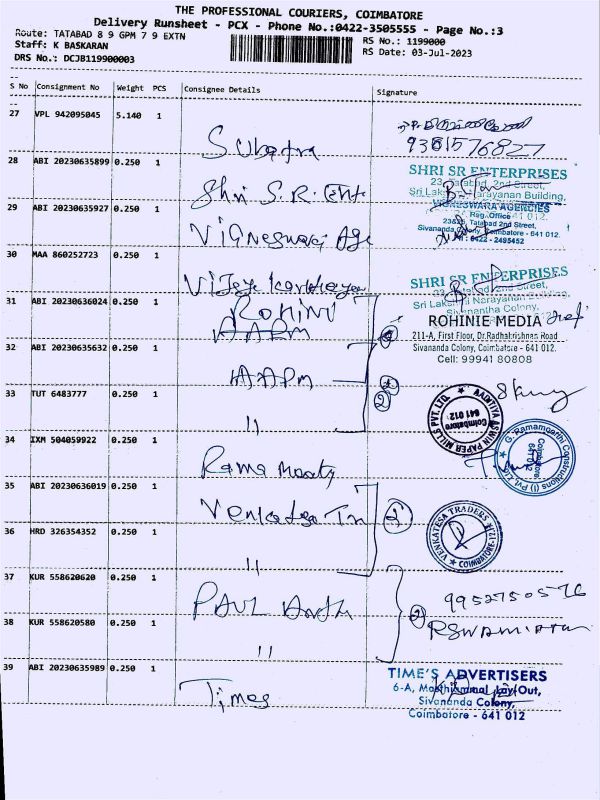 THE PROFESSIONAL COURIERS, COIMBATORE
Delivery Runsheet - PCX - Phone No.:0422-3505555 - Page No.:3
Route: TATABAD 8 9 GPM 7 9 EXTN
RS No.: 1199000
Staff: K BASKARAN
RS Date: 03-Jul-2023
DRS No.: DCJB119900003
S No Consignment No Weight PCS Consignee Details Signature
27 VPL 942095045 5.140 1
9381576827
28 ABI 20230635899 0.250 1
Shri S.R. Ent
SHRI SR ENTERPRISES
23, Tatabad, 2nd Street,
Sri Lakshmi Narayanan Building,
29 ABI 20230635927 0.250 1
VIGNESWARA AGENCIES
Reg. Office
Tatabad 2nd Street,
Sivananda Colony, Coimbatore - 641 012.
Ph : 0422 - 2495452
30 MAA 860252723 0.250 1
SHRI SR ENTERPRISES
23, Tatabad, 2nd Street,
Sri Lakshmi Narayanan Building,
Sivanantha Colony,
31 ABI 20230636024 0.250 1
ROHINI
ROHINIE MEDIA
211-A, First Floor, Dr.Radhakrishnan Road
Sivananda Colony, Coimbatore - 641 012.
Cell: 99941 80808
32 ABI 20230635632 0.250 1
AAPM
33 TUT 6483777 0.250 1
"
AADITYA ASWIN PAPER MILLS PVT. LTD.
Coimbatore
641 012
34 IXM 504059922 0.250 1
Rama Moorthy
G. Ramamoorthi Constructions (I) Pvt Ltd
Coimbatore
641 012
35 ABI 20230636019 0.250 1
VENKATESA TRADERS
COIMBATORE-12
36 HRD 326354352 0.250 1
"
37 KUR 558620620 0.250 1
PAUL
9952750576
38 KUR 558620580 0.250 1
"
39 ABI 20230635989 0.250 1
Times
TIME'S ADVERTISERS
6-A, Lay Out,
Sivananda Colony,
Coimbatore - 641 012